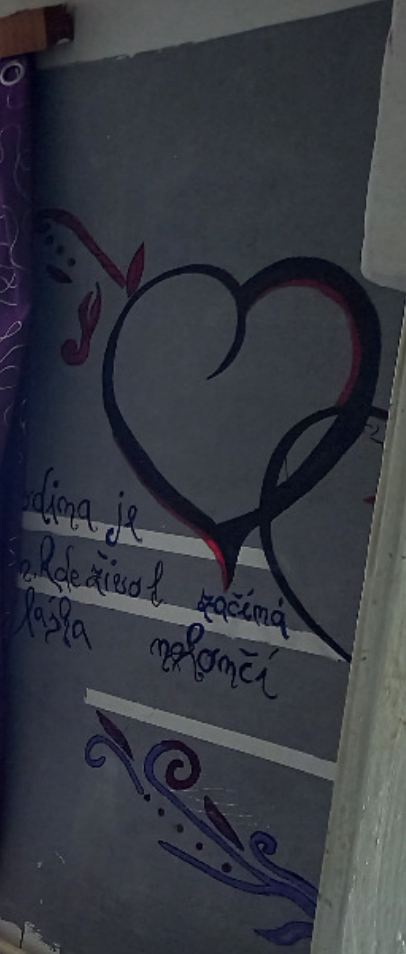 odina je
kde život začíná
láska nekončí